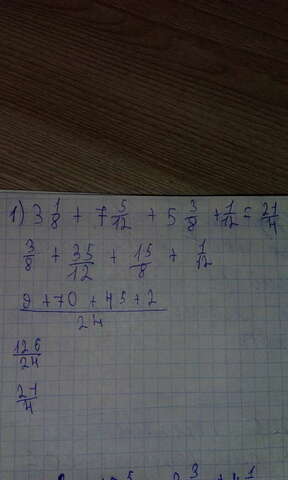 1) 3 1/8 + 7 5/12 + 5 3/8 + 1/12 = 21/4
3/8 + 35/12 + 15/8 + 1/12
9 + 70 + 45 + 2 / 24
126/24
21/4